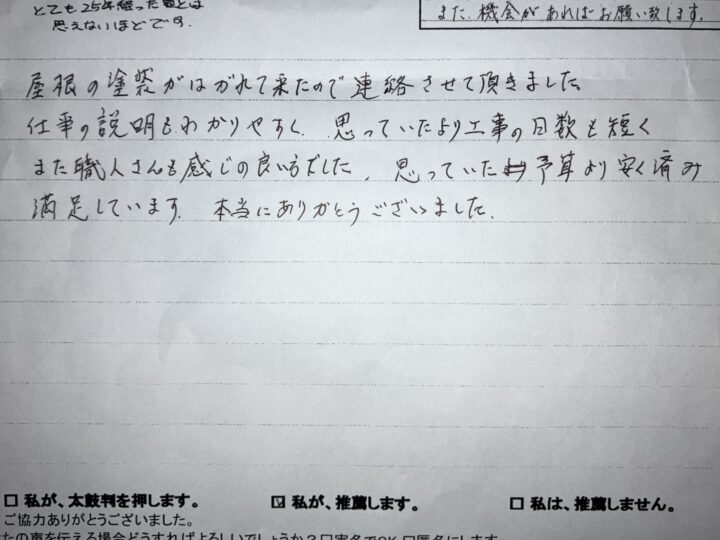 とても25年経った家とは
思えないほどです。
また、機会があればお願い致します。
屋根の塗装がはがれて来たので連絡させて頂きました。
仕事の説明もわかりやすく、思っていたより工事の日数も短く
また職人さんも感じの良い方でした。思っていた予算より安く済み
満足しています。本当にありがとうございました。
□ 私が、太鼓判を押します。 ☑ 私が、推薦します。 □ 私は、推薦しません。
ご協力ありがとうございました。
たの声を伝える場合どうすればよろしいでしょうか?□実名でOK □匿名にします